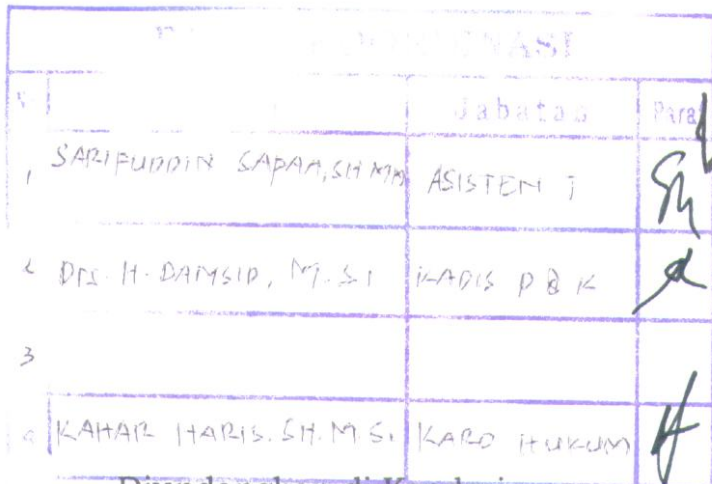 Jabatan Paraf
1 SARIFUDDIN SAPAA, SH MM ASISTEN I
2 DRS. H. DAMSID, M.SI KADIS P & K
3
4 KAHAR HARIS. SH. M.S. KARO HUKUM